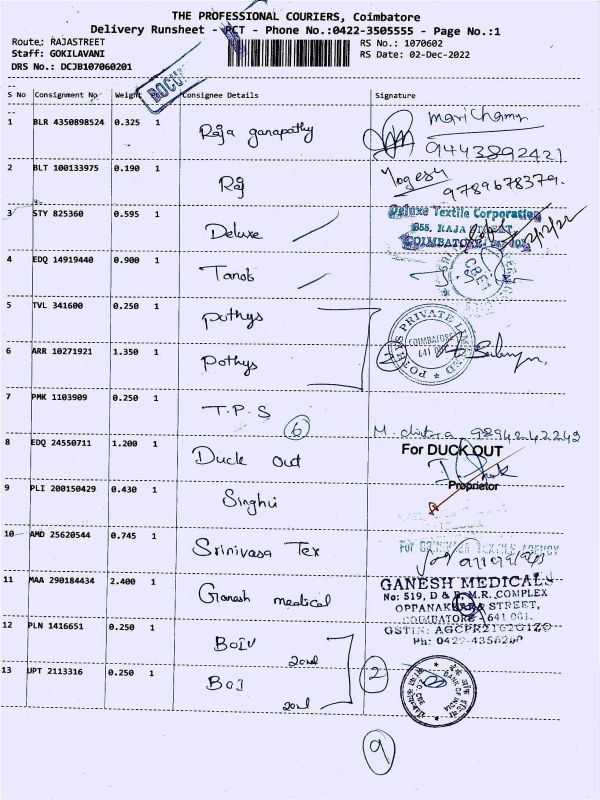 THE PROFESSIONAL COURIERS, Coimbatore
Delivery Runsheet - PCT - Phone No.:0422-3505555 - Page No.:1
Route: RAJASTREET
RS No.: 1070602
Staff: GOKILAVANI
RS Date: 02-Dec-2022
DRS No.: DCJB107060201
S No Consignment No Weight Pcs Consignee Details Signature
1 BLR 4350898524 0.325 1 Raja ganapathy
9443892421
2 BLT 100133975 0.190 1 Raj Yogesh
9789678379.
3 STY 825360 0.595 1 Deluxe
Deluxe Textile Corporation
355, RAJA STREET,
COIMBATORE
2/12/22
4 EDQ 14919440 0.900 1
CBE1
5 TVL 341600 0.250 1 pothys
POTHYS PRIVATE LIMITED
COIMBATORE
641 001
6 ARR 10271921 1.350 1 Pothys
7 PMK 1103909 0.250 1 T.P.S
6
M. chitra 9894242243
8 EDQ 24550711 1.200 1 Duck out
For DUCK OUT
Proprietor
9 PLI 200150429 0.430 1 Singhvi
10 AMD 25620544 0.745 1 Srinivasa Tex
TEXTILE AGENCY
11 MAA 290184434 2.400 1 Ganesh medical
GANESH MEDICALS
No: 519, D & B, M.R. COMPLEX
OPPANAKKARA STREET,
COIMBATORE - 641 001.
GSTIN: AGCPR2162G1Z0
Ph: 0422-4356260
12 PLN 1416651 0.250 1
2
13 UPT 2113316 0.250 1 BOI
BANK OF INDIA
9